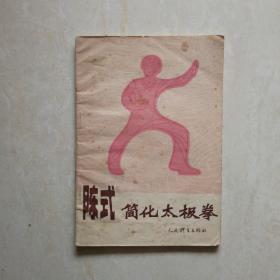 陈式 简化太极拳
人民体育出版社